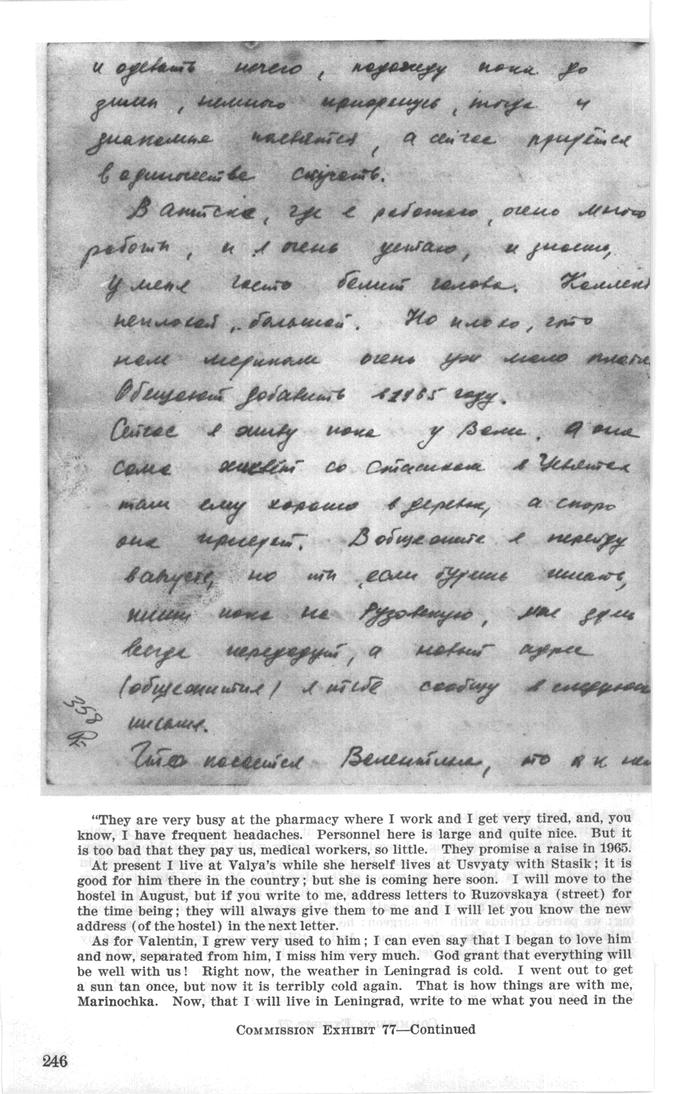 и одевать нечего, подожду пока до
зимы, немного приоденусь, тогда и
знакомые появятся, а сейчас придётся
в одиночестве скучать.
В аптеке, где я работаю, очень много
работы, и я очень устаю, и знаешь,
у меня часто болит голова. Коллект
неплохой, большой. Но плохо, что
нам медикам очень уж мало плат
Обещают добавить в 1965 году.
Сейчас я живу пока у Вали. А она
сама живёт со Стасиком в Усвятах
там ему хорошо в деревне, а скоро
она приедет. В общежитие я перейду
в августе, но ты если будешь писать,
пиши пока на Рузовскую, мне
всегда передадут, а новый адрес
(общежития) я тебе сообщу в следующ
письме.
Что касается Валентина, то я к не
358
"They are very busy at the pharmacy where I work and I get very tired, and, you
know, I have frequent headaches. Personnel here is large and quite nice. But it
is too bad that they pay us, medical workers, so little. They promise a raise in 1965.
At present I live at Valya's while she herself lives at Usvyaty with Stasik; it is
good for him there in the country; but she is coming here soon. I will move to the
hostel in August, but if you write to me, address letters to Ruzovskaya (street) for
the time being; they will always give them to me and I will let you know the new
address (of the hostel) in the next letter.
As for Valentin, I grew very used to him; I can even say that I began to love him
and now, separated from him, I miss him very much. God grant that everything will
be well with us! Right now, the weather in Leningrad is cold. I went out to get
a sun tan once, but now it is terribly cold again. That is how things are with me,
Marinochka. Now, that I will live in Leningrad, write to me what you need in the
COMMISSION EXHIBIT 77—Continued
246